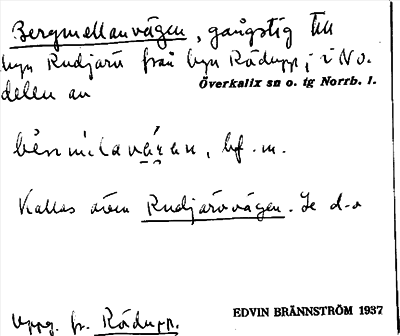 Bergmellanvägen, gångstig till
byn Rudjärv från byn Rödupp; i No.
delen av
Överkalix sn o. tg Norrb. l.
bf. m.
Kallas även Rudjärvvägen. Se d-o
Uppg. fr. Rödupp.
EDVIN BRÄNNSTRÖM 1937